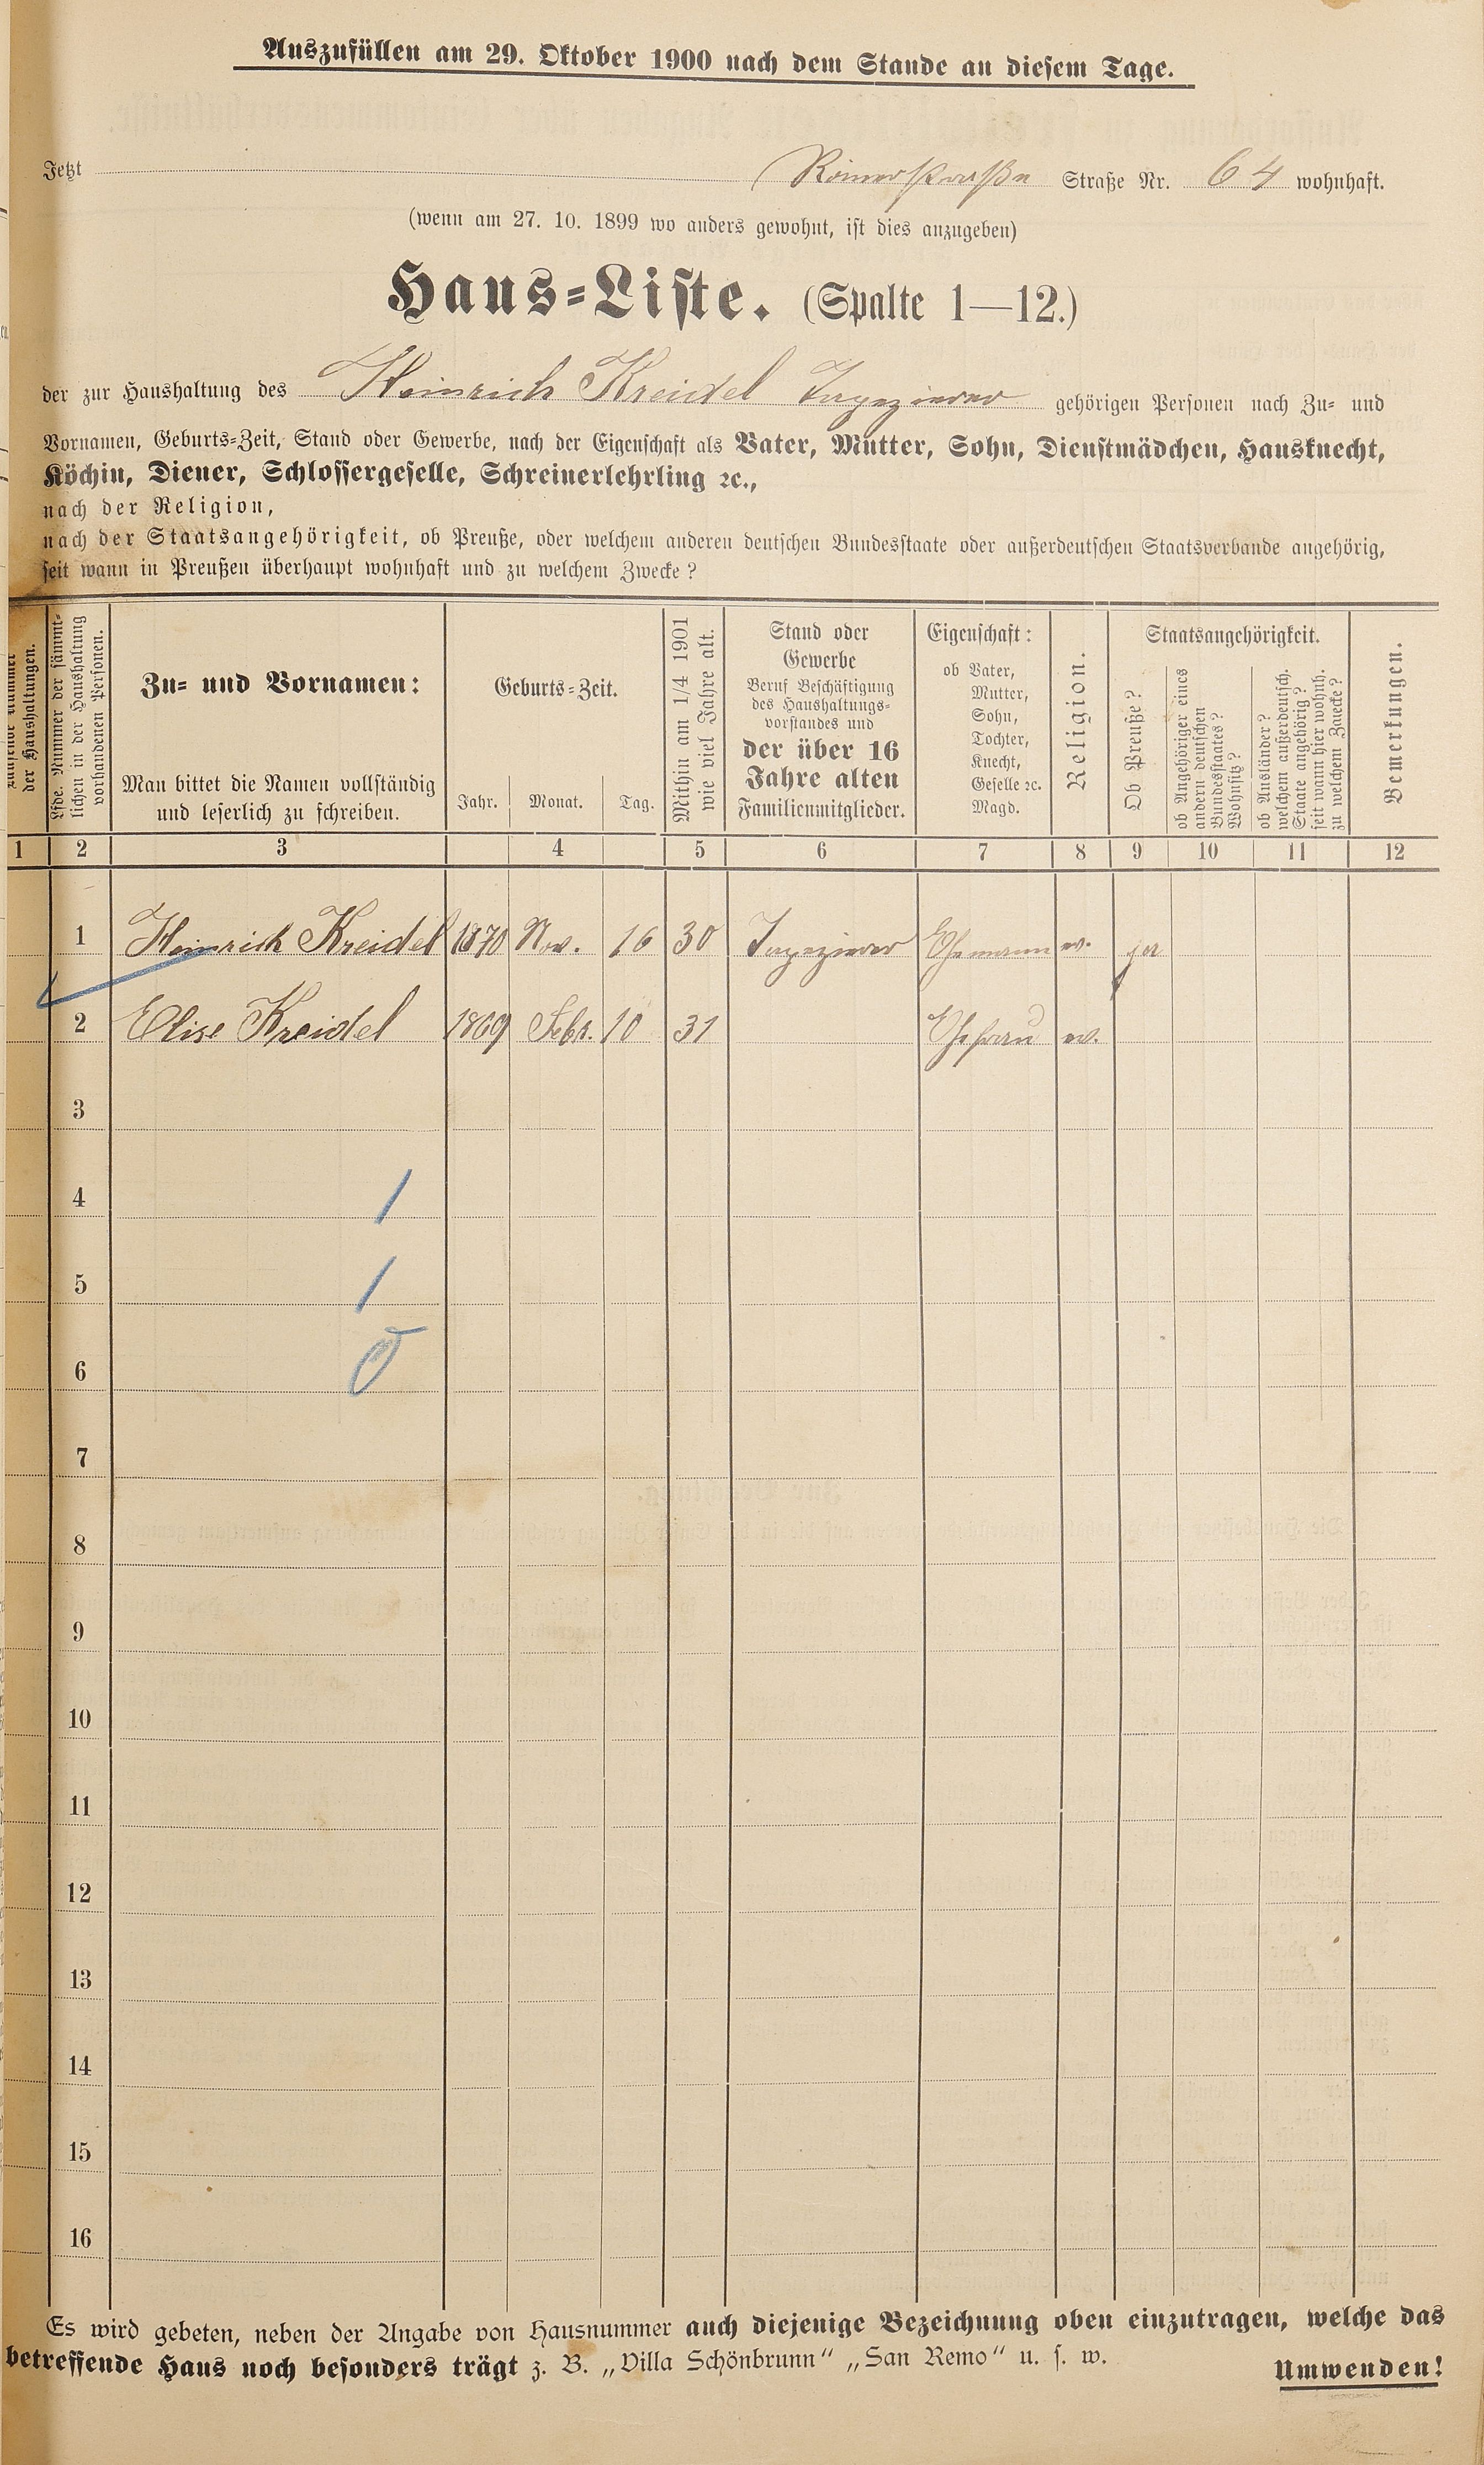 Auszufüllen am 29. Oktober 1900 nach dem Stande an diesem Tage.
Jetzt Römerstraße Straße Nr. 64 wohnhaft.
(wenn am 27. 10. 1899 wo anders gewohnt, ist dies anzugeben)
Haus-Liste. (Spalte 1—12.)
der zur Haushaltung des Heinrich Kreidel Tapezierer gehörigen Personen nach Zu- und
Vornamen, Geburts-Zeit, Stand oder Gewerbe, nach der Eigenschaft als Vater, Mutter, Sohn, Dienstmädchen, Hausknecht,
Köchin, Diener, Schlossergeselle, Schreinerlehrling ꝛc.,
nach der Religion,
nach der Staatsangehörigkeit, ob Preuße, oder welchem anderen deutschen Bundesstaate oder außerdeutschen Staatsverbande angehörig,
seit wann in Preußen überhaupt wohnhaft und zu welchem Zwecke?
Laufende Nummer
der Haushaltungen.
Lfde. Nummer der sämmt-
lichen in der Haushaltung
vorhandenen Personen.
Zu- und Vornamen:
Man bittet die Namen vollständig
und leserlich zu schreiben.
Geburts-Zeit.
Jahr. Monat. Tag.
Mithin am 1/4 1901
wie viel Jahre alt.
Stand oder
Gewerbe
Beruf Beschäftigung
des Haushaltungs-
vorstandes und
der über 16
Jahre alten
Familienmitglieder.
Eigenschaft:
ob Vater,
Mutter,
Sohn,
Tochter,
Knecht,
Geselle ꝛc.
Magd.
Religion.
Staatsangehörigkeit.
Ob Preuße?
ob Angehöriger eines
andern deutschen
Bundesstaates?
Wohnsitz?
ob Ausländer?
welchem außerdeutsch.
Staate angehörig?
seit wann hier wohnh.
zu welchem Zwecke?
Bemerkungen.
1 2 3 4 5 6 7 8 9 10 11 12
1 Heinrich Kreidel 1870 Nov. 16 30 Tapezierer Ehemann ev. ja
2 Elise Kreidel 1869 Febr. 10 31 Ehefrau ev.
3
4 1
5 1
6 0
7
8
9
10
11
12
13
14
15
16
Es wird gebeten, neben der Angabe von Hausnummer auch diejenige Bezeichnung oben einzutragen, welche das
betreffende Haus noch besonders trägt z. B. „Villa Schönbrunn“ „San Remo“ u. s. w.
Umwenden!